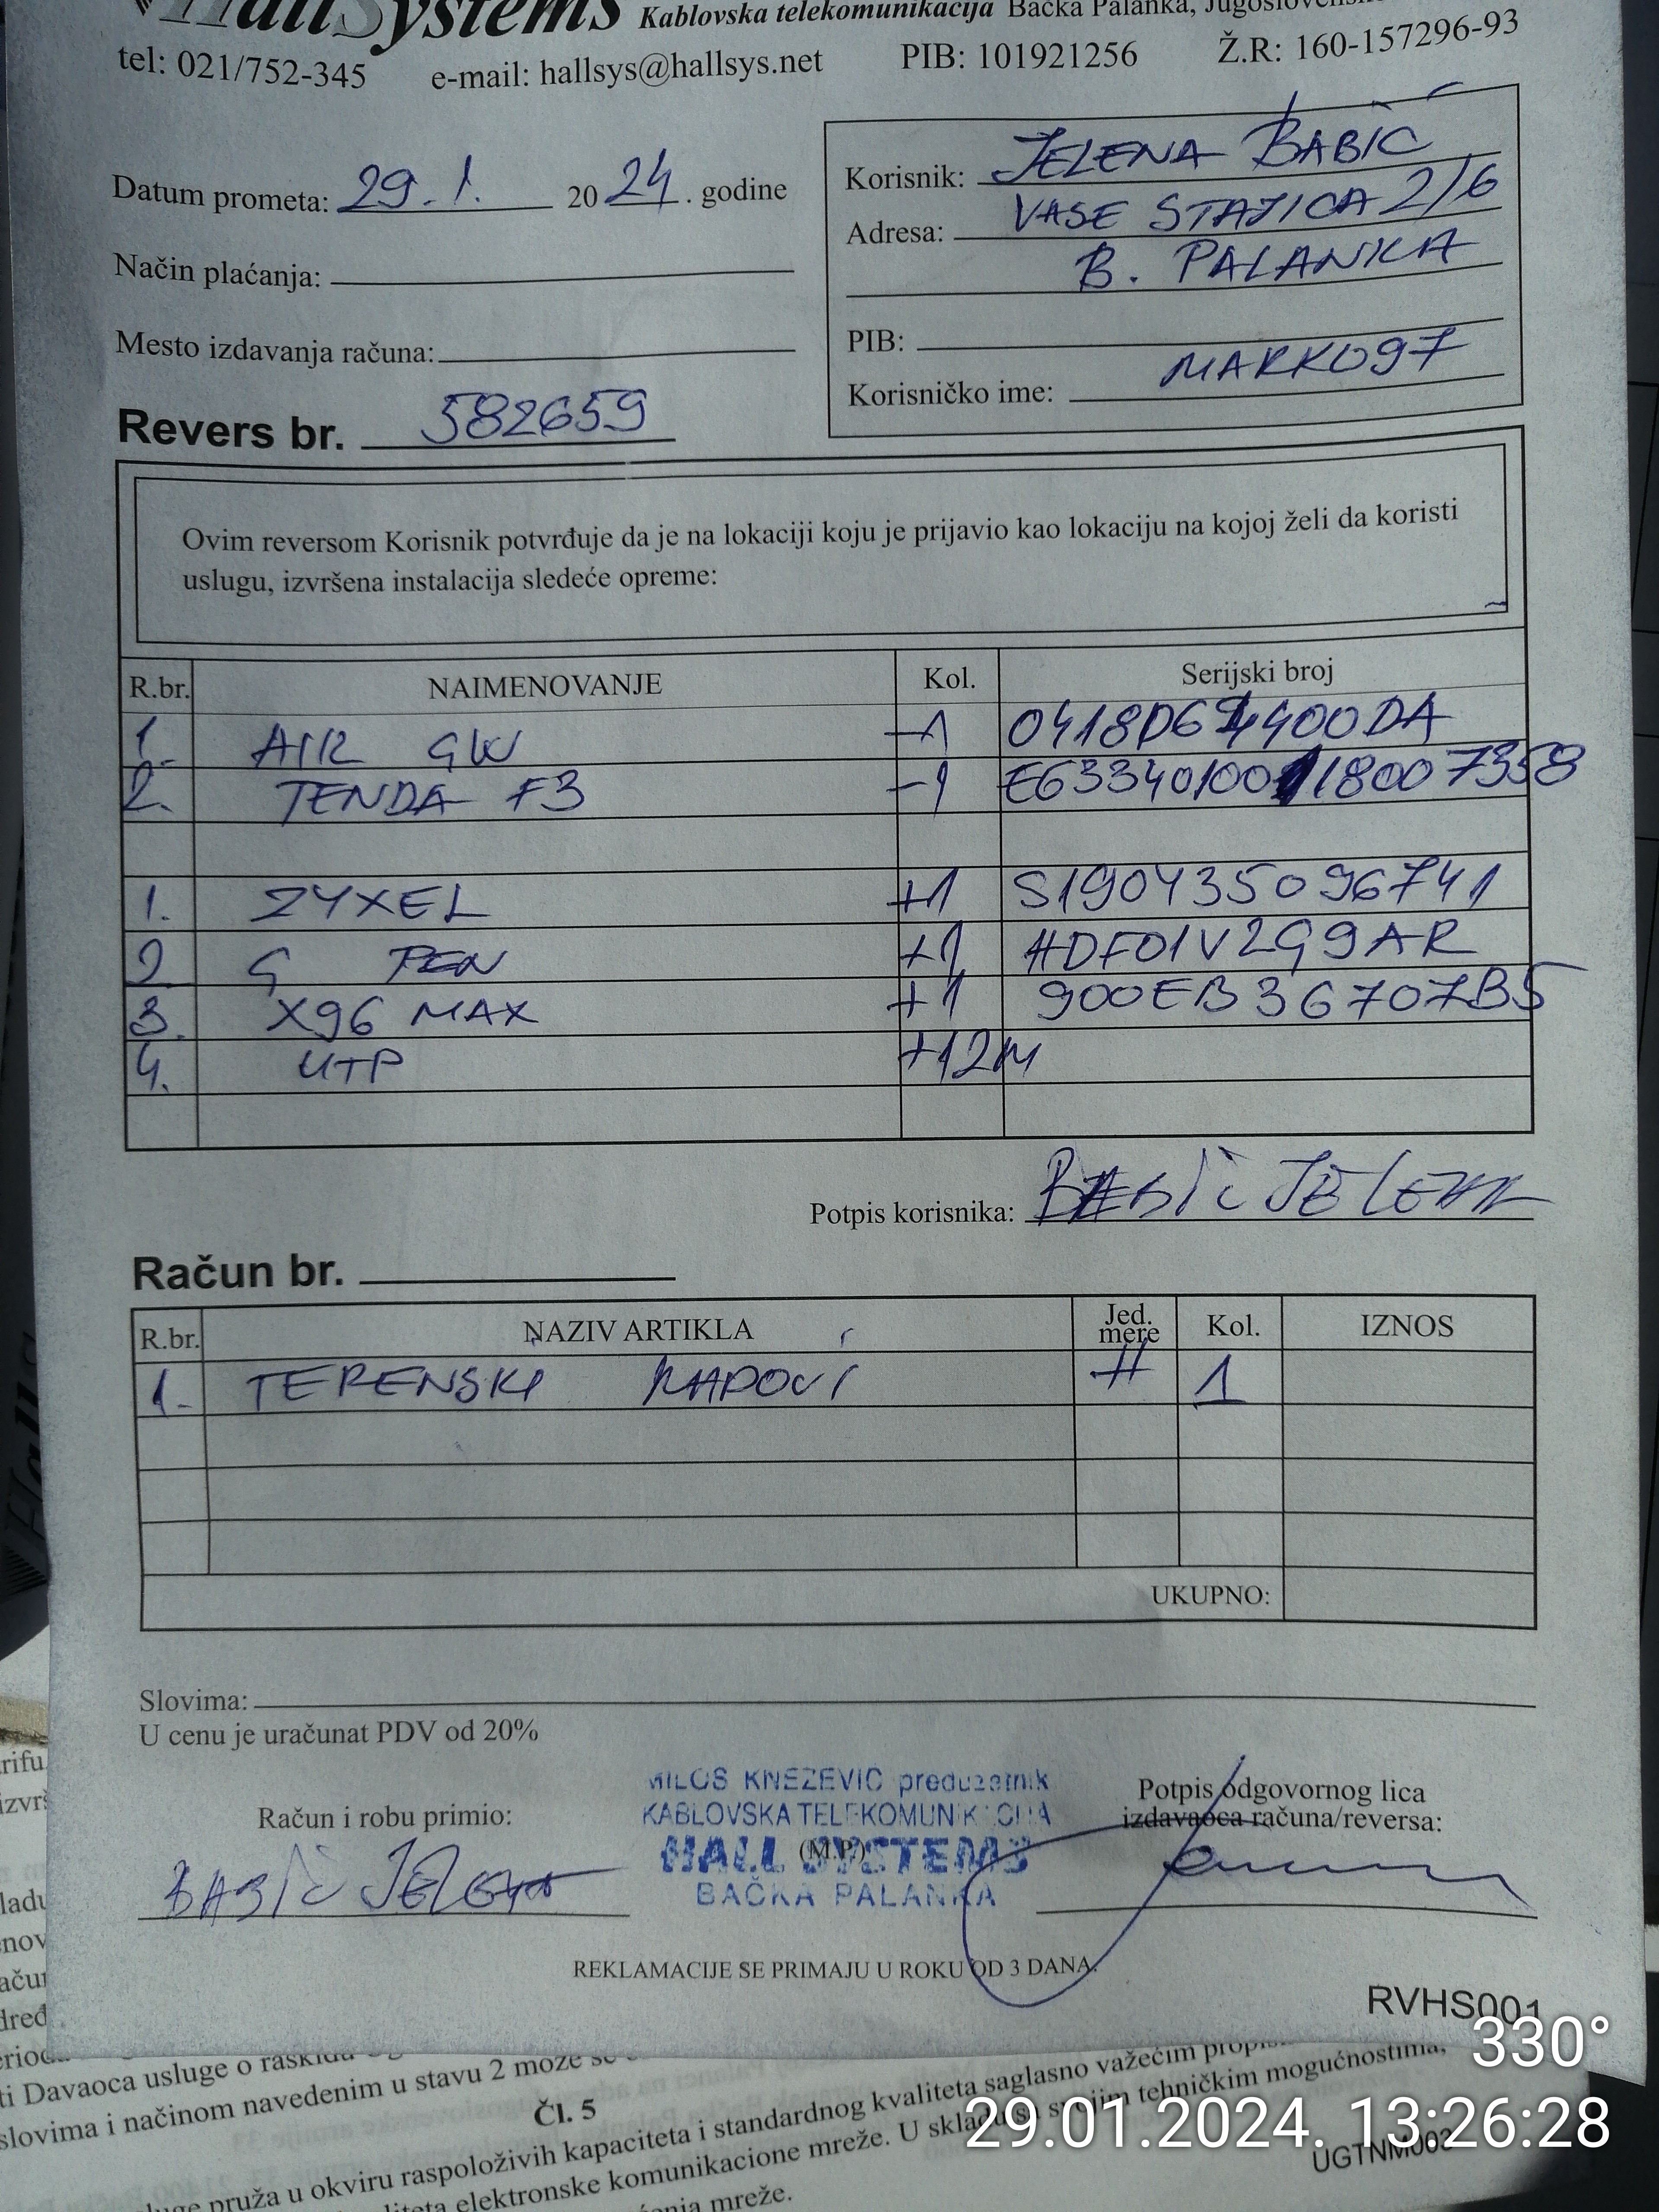 HallSystems Kablovska telekomunikacija Bačka Palanka,
tel: 021/752-345 e-mail: hallsys@hallsys.net PIB: 101921256 Ž.R: 160-157296-93
Datum prometa: 29. 1. 2024. godine
Način plaćanja:
Mesto izdavanja računa:
Korisnik: JELENA BABIĆ
Adresa: VASE STAJICA 2/6
B. PALANKA
PIB:
Korisničko ime: MARKO97
Revers br. 582659
Ovim reversom Korisnik potvrđuje da je na lokaciji koju je prijavio kao lokaciju na kojoj želi da koristi
uslugu, izvršena instalacija sledeće opreme:
R.br. NAIMENOVANJE Kol. Serijski broj
1. AIR GW -1
2. TENDA F3 -1
1. ZYXEL +1 S190435096741
2 G PEN +1 HDF01V2G9AR
3. X96 MAX +1 900EB36707B5
4. UTP +12M
Potpis korisnika: BABIĆ JELENA
Račun br.
R.br. NAZIV ARTIKLA Jed. mere Kol. IZNOS
1. TERENSKI RADOVI H 1
UKUPNO:
Slovima:
U cenu je uračunat PDV od 20%
MILOS KNEZEVIC preduzetnik
KABLOVSKA TELEKOMUNIKACIJA
HALL SYSTEMS
(M.P.)
BAČKA PALANKA
Račun i robu primio:
BABIĆ JELENA
Potpis odgovornog lica
izdavaoca računa/reversa:
REKLAMACIJE SE PRIMAJU U ROKU OD 3 DANA.
RVHS001
ti Davaoca usluge o raskidu
slovima i načinom navedenim u stavu 2 može se
Čl. 5
pruža u okviru raspoloživih kapaciteta i standardnog kvaliteta saglasno važećim
elektronske komunikacione mreže. U skladu sa svojim tehničkim mogućnostima,
mreže.
UGTNM002
330°
29.01.2024. 13:26:28